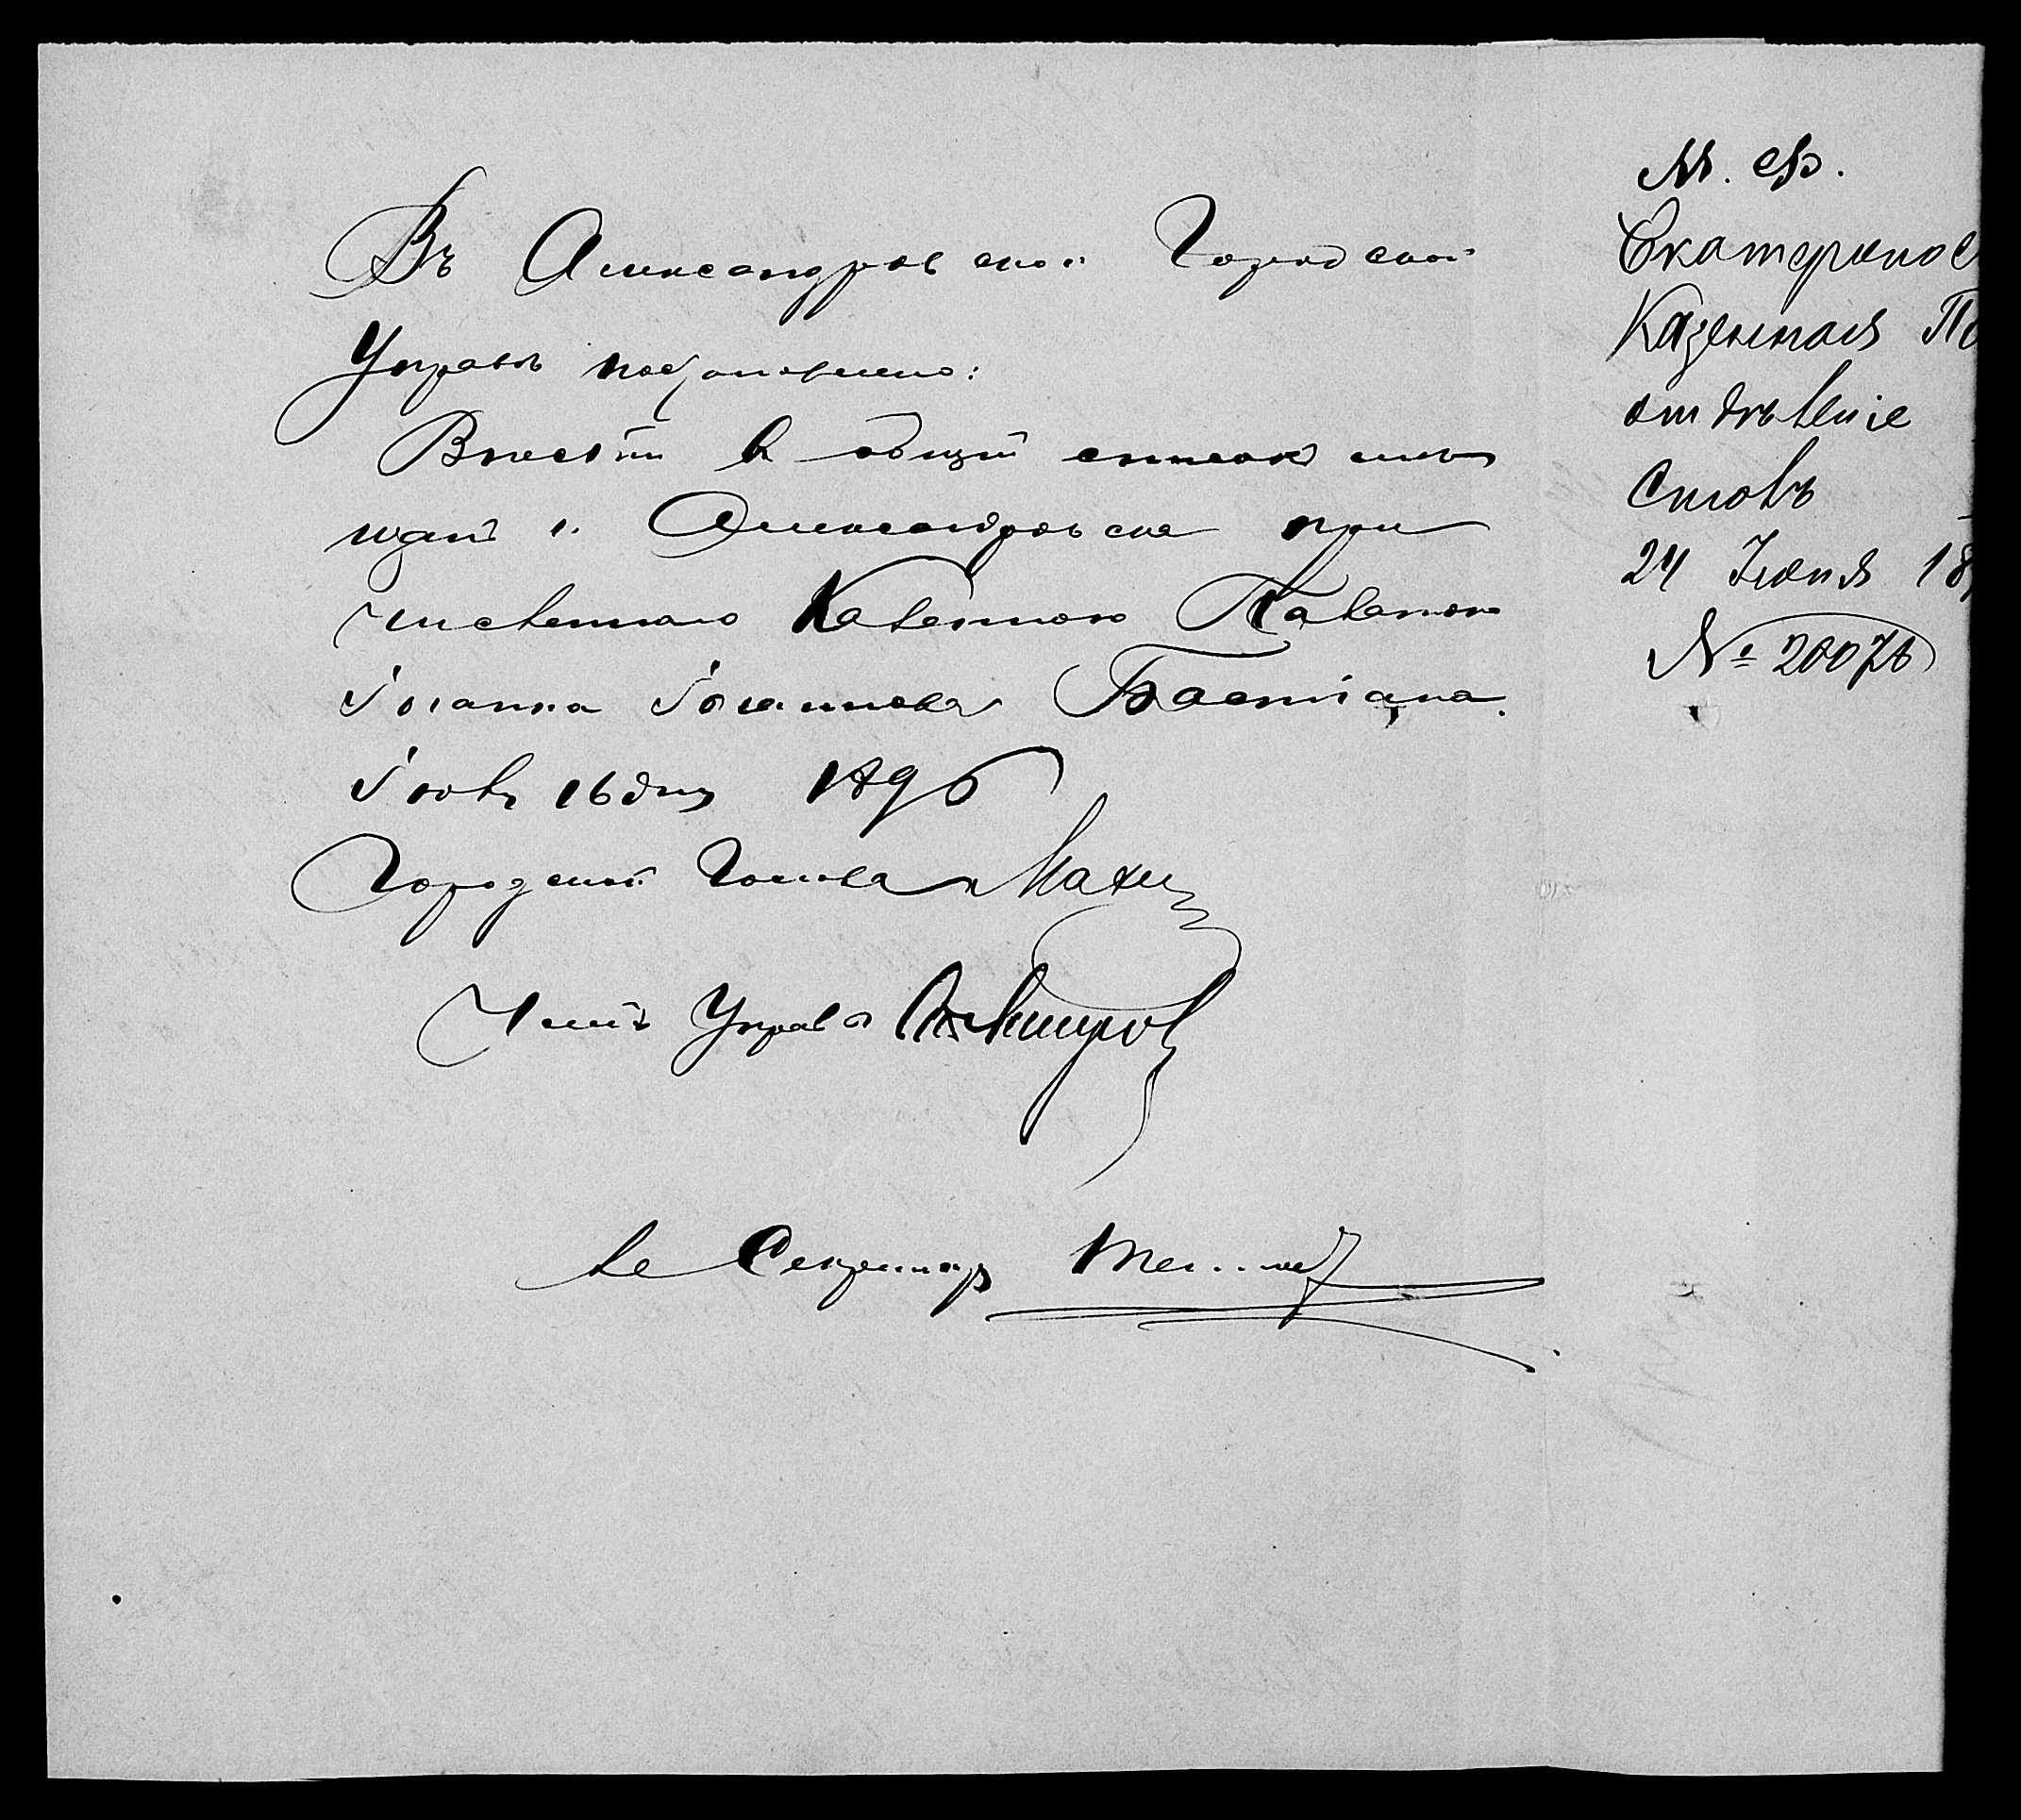 Въ Александровской Городской
Управѣ постановлено:
Внести въ общій списокъ мѣ
щанъ г. Александровска при
численнаго Казенною Палатою
Іоганна Іоганнова Бастіана.
Іюля 16 дня 1896
Городской Голова
Членъ Управы
Секретарь
М. Ф.
Екатеринос
Казенная П
отдѣленіе
Столъ
24 Іюня 18
№ 20076